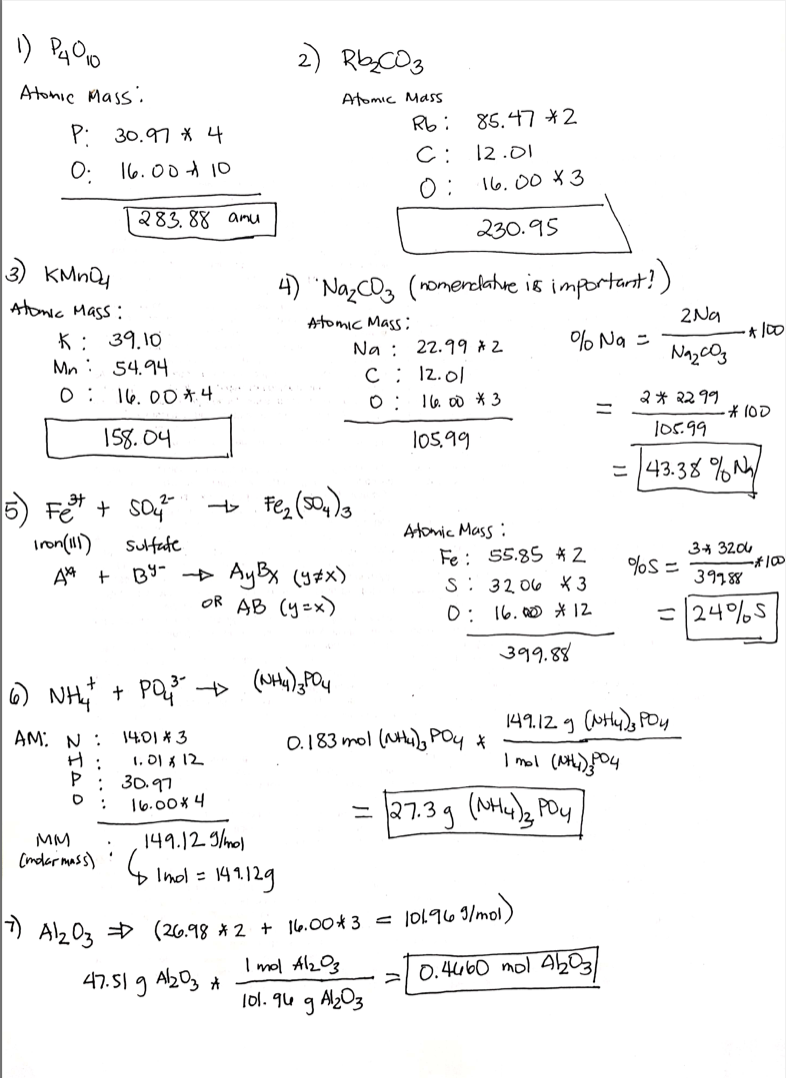 1) P₄O₁₀
Atomic Mass:
P: 30.97 * 4
O: 16.00 * 10
283.88 amu
2) Rb₂CO₃
Atomic Mass
Rb: 85.47 * 2
C: 12.01
O: 16.00 * 3
230.95
3) KMnO₄
Atomic Mass:
K: 39.10
Mn: 54.94
O: 16.00 * 4
158.04
4) Na₂CO₃ (nomenclature is important!)
Atomic Mass:
Na: 22.99 * 2
C: 12.01
O: 16.00 * 3
105.99
% Na = 2Na / Na₂CO₃ * 100
= 2 * 22.99 / 105.99 * 100
= 43.38 % Na
5) Fe³⁺ + SO₄²⁻ → Fe₂(SO₄)₃
Iron(III) Sulfate
Aˣ⁺ + Bʸ⁻ → AyBx (y≠x)
OR AB (y=x)
Atomic Mass:
Fe: 55.85 * 2
S: 32.06 * 3
O: 16.00 * 12
399.88
%S = 3 * 32.06 / 399.88 * 100
= 24%S
6) NH₄⁺ + PO₄³⁻ → (NH₄)₃PO₄
AM: N: 14.01 * 3
H: 1.01 * 12
P: 30.97
O: 16.00 * 4
MM (molar mass): 149.12 g/mol
↳ 1mol = 149.12g
0.183 mol (NH₄)₃PO₄ * 149.12 g (NH₄)₃PO₄ / 1 mol (NH₄)₃PO₄
= 27.3 g (NH₄)₃PO₄
7) Al₂O₃ ⇒ (26.98 * 2 + 16.00 * 3 = 101.96 g/mol)
47.51 g Al₂O₃ * 1 mol Al₂O₃ / 101.96 g Al₂O₃ = 0.4660 mol Al₂O₃